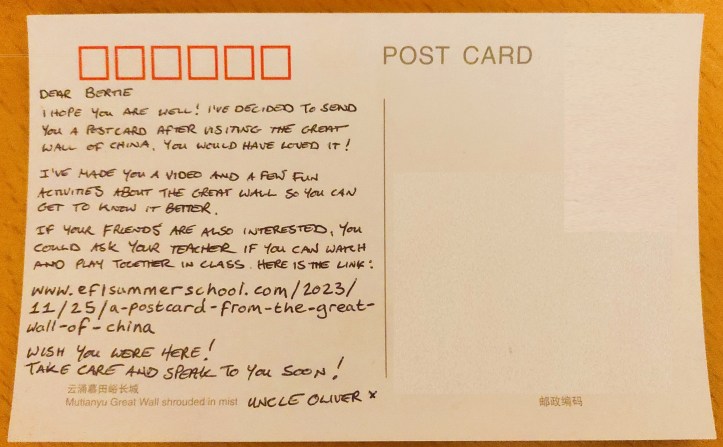 POST CARD
DEAR BERTIE
I HOPE YOU ARE WELL! I'VE DECIDED TO SEND
YOU A POSTCARD AFTER VISITING THE GREAT
WALL OF CHINA. YOU WOULD HAVE LOVED IT!
I'VE MADE YOU A VIDEO AND A FEW FUN
ACTIVITIES ABOUT THE GREAT WALL SO YOU CAN
GET TO KNOW IT BETTER.
IF YOUR FRIENDS ARE ALSO INTERESTED, YOU
COULD ASK YOUR TEACHER IF YOU CAN WATCH
AND PLAY TOGETHER IN CLASS. HERE IS THE LINK:
www.eflsummerschool.com/2023/
11/25/a-postcard-from-the-great-
wall-of-china
WISH YOU WERE HERE!
TAKE CARE AND SPEAK TO YOU SOON!
UNCLE OLIVER x
云涌慕田峪长城
Mutianyu Great Wall shrouded in mist
邮政编码